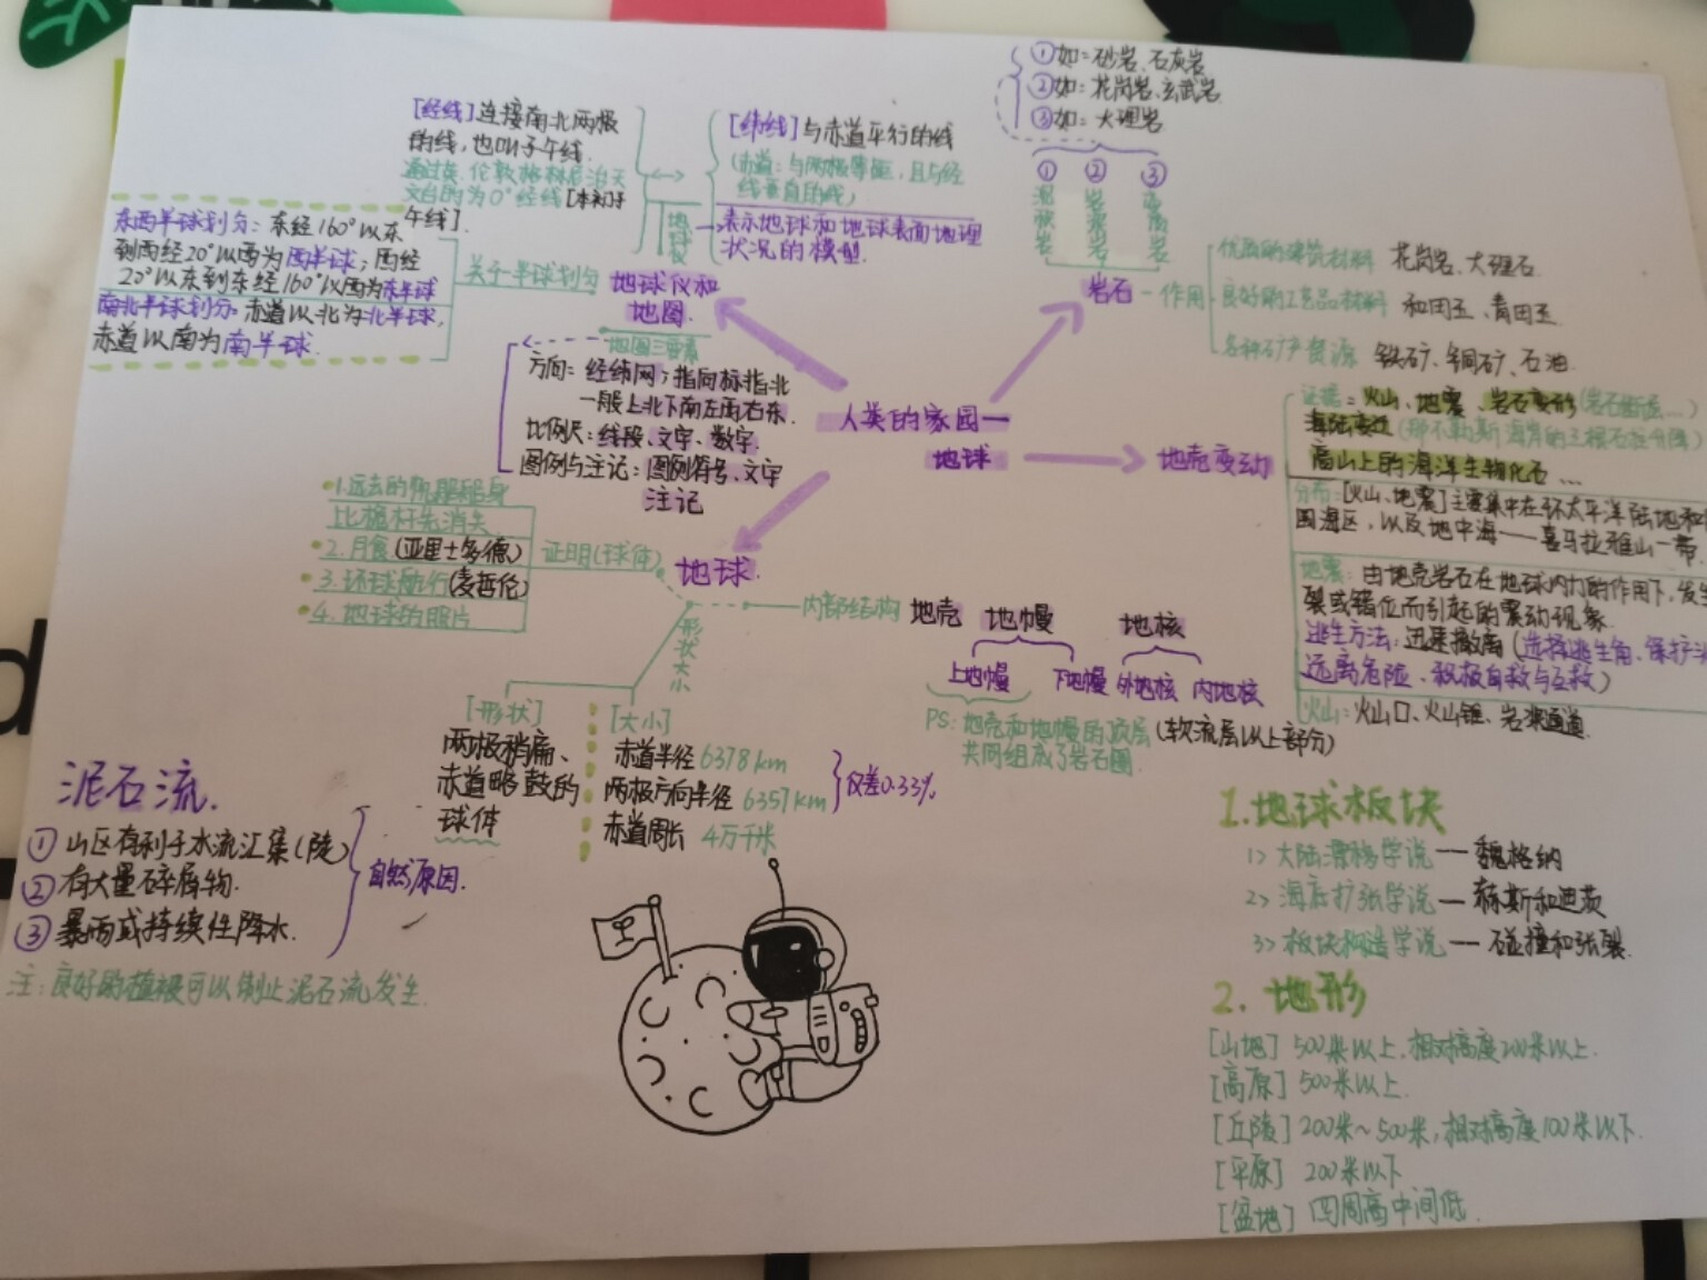 人类的家园一
地球
地球仪和
地图
[经线]连接南北两极
的线,也叫子午线.
通过英、伦敦格林尼治天
文台的为0°经线[本初子
午线].
[纬线]与赤道平行的线
(赤道:与两极等距,且与经
线垂直的线)
地球仪
表示地球和地球表面地理
状况的模型.
关于半球划分
东西半球划分:东经160°以东
到西经20°以西为西半球;西经
20°以东到东经160°以西为东半球
南北半球划分:赤道以北为北半球,
赤道以南为南半球.
地图三要素
方向:经纬网;指向标指北
一般上北下南左西右东.
比例尺:线段、文字、数字.
图例与注记:图例符号、文字
注记
①如:砂岩、石灰岩
②如:花岗岩、玄武岩
③如:大理岩
① ② ③
沉积岩
岩浆岩
变质岩
岩石
作用
优质的建筑材料 花岗岩、大理石.
良好的工艺品材料 和田玉、青田玉.
各种矿产资源 铁矿、铜矿、石油.
地壳变动
证据:火山、地震、岩石变形(岩石断层...)
海陆变迁(那不勒斯海岸的三根石柱升降)
高山上的海洋生物化石...
分布:[火山、地震]主要集中在环太平洋陆地和
围海区,以及地中海——喜马拉雅山一带.
地震:由地壳岩石在地球内力的作用下,发生
裂或错位而引起的震动现象.
逃生方法:迅速撤离(选择逃生角、保护
远离危险、积极自救与互救)
火山:火山口、火山锥、岩浆通道.
地球.
证明(球体)
1.远去的帆船船身
比桅杆先消失
2.月食(亚里士多德)
3.环球航行(麦哲伦)
4.地球的照片
形状大小
[形状]
两极稍扁、
赤道略鼓的
球体
[大小]
赤道半径6378km
两极方向半径6357km
赤道周长 4万千米
仅差0.33%.
内部结构 地壳 地幔 地核
上地幔 下地幔 外地核 内地核
PS:地壳和地幔的顶层(软流层以上部分)
共同组成了岩石圈.
泥石流.
①山区有利于水流汇集(陡)
②有大量碎屑物.
③暴雨或持续性降水.
自然原因.
注:良好的植被可以制止泥石流发生.
1.地球板块
1>大陆漂移学说—魏格纳
2>海底扩张学说—赫斯和迪茨
3>板块构造学说—碰撞和张裂.
2.地形
[山地]500米以上,相对高度200米以上.
[高原]500米以上.
[丘陵]200米~500米,相对高度100米以下.
[平原]200米以下
[盆地]四周高中间低.